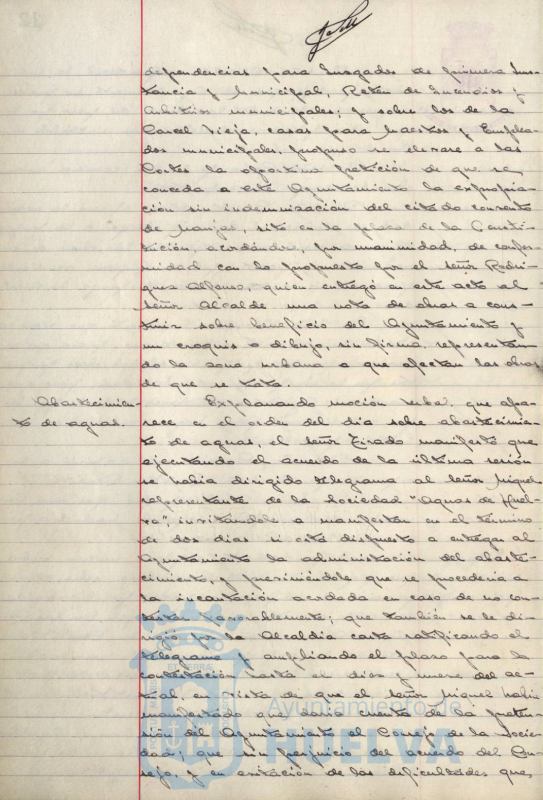 dependencias para Juzgados de primera Ins-
tancia y Municipal, Reten de Incendios y
Arbitrios municipales; y sobre los de la
Carcel Vieja, casas para Maestros y Emplea-
dos municipales, propuso se elevase a las
Cortes la oportuna petición de que se
conceda a este Ayuntamiento la expropia-
ción sin indemnización del citado convento
de Monjas, sito en la plaza de la Consti-
tución, acordándose, por unanimidad, de confor-
midad con lo propuesto por el señor Rodri-
guez Alfonso, quien entregó en este acto al
señor Alcalde una nota de obras a cons-
truir sobre beneficio del Ayuntamiento y
un croquis o dibujo, sin firma, representan-
do la zona urbana a que afectan las obras
de que se trata.
Abastecimien-
to de aguas.
Explanando moción verbal que apa-
rece en el orden del dia sobre abastecimien-
to de aguas, el señor Tirado manifestó que
ejecutando el acuerdo de la última sesión
se habia dirigido telegrama al señor Miguel
representante de la Sociedad "Aguas de Huel-
va", invitandole a manifestar en el término
de dos dias si está dispuesto a entregar al
Ayuntamiento la administración del abaste-
cimiento, y previniéndole que se procederia a
la incautación acordada en caso de no con-
testar favorablemente; que también se le di-
rigió por la Alcaldia carta ratificando el
telegrama y ampliando el plazo para la
contestación hasta el diez y nueve del ac-
tual, a vista de que el señor Miguel habia
manifestado que daria cuenta de la preten-
sión del Ayuntamiento al Consejo de la Socie-
dad; que sin perjuicio del acuerdo del Con-
sejo, y en evitación de las dificultades que,
Ayuntamiento de
HUELVA